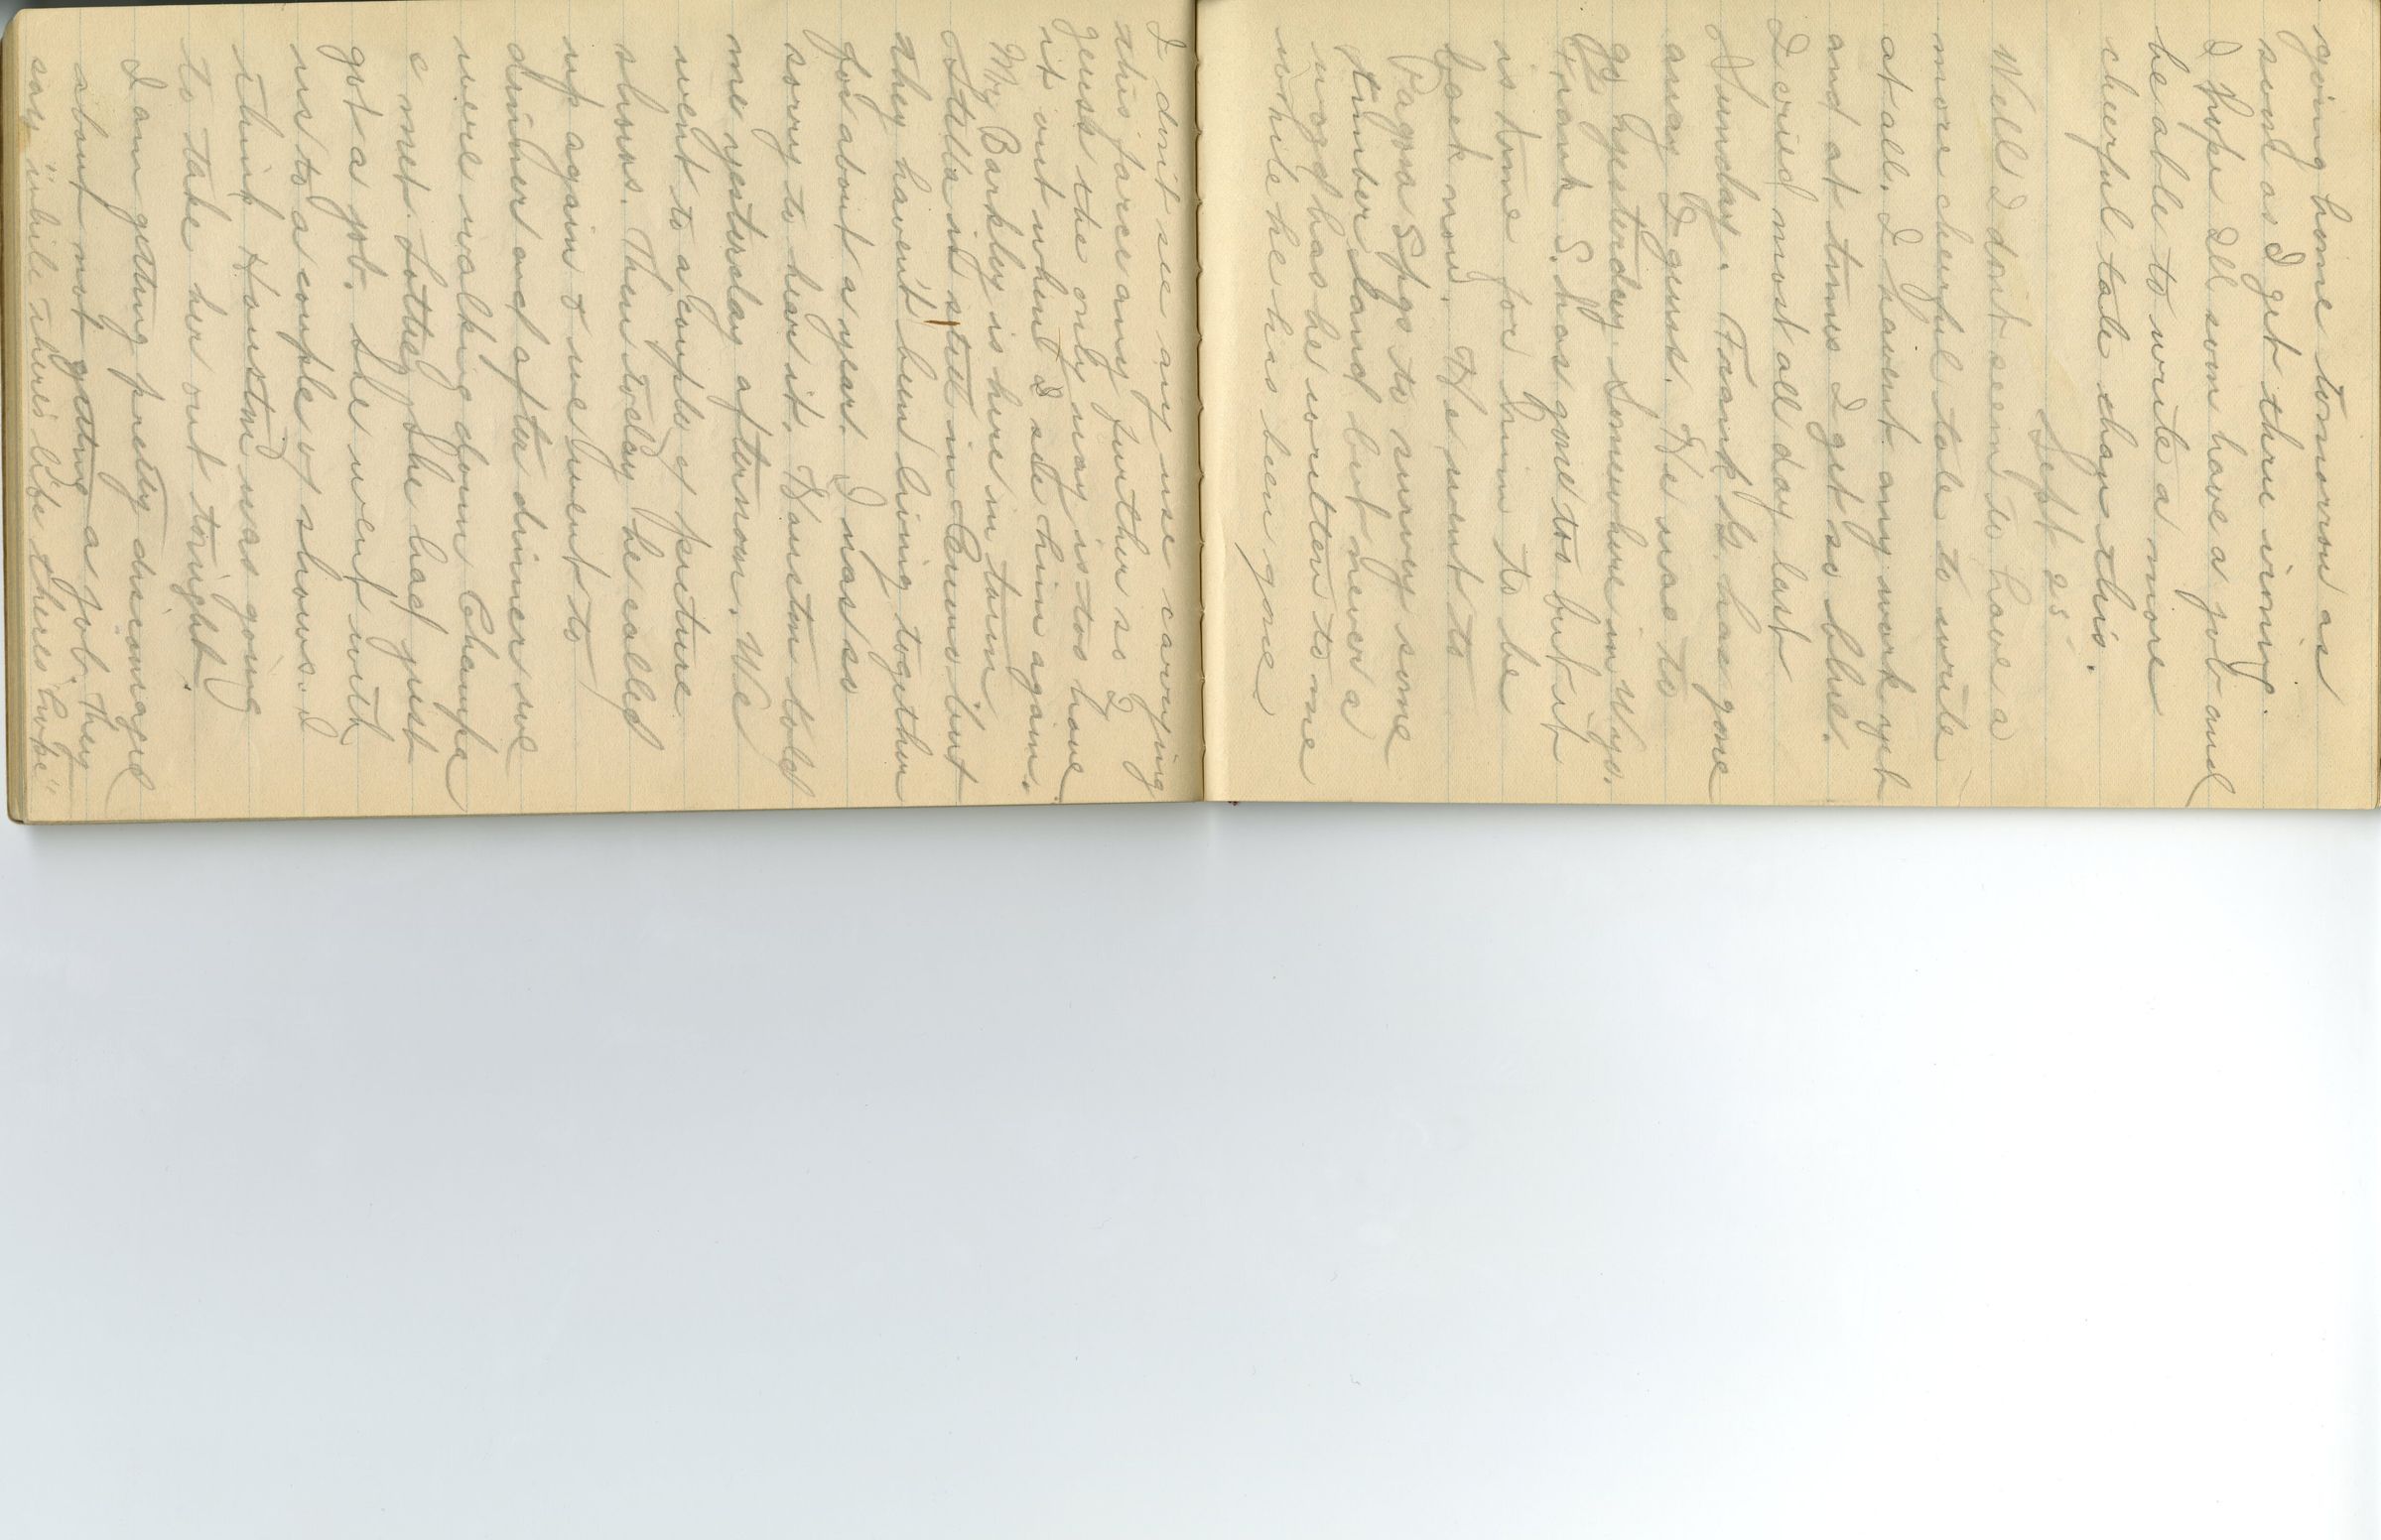 going home tomorrow as
soon as I get there irong.
I hope Ill soon have a job and
be able to write a more
cheerful tale than this.
Sept 25-
Well I dont seem to have a
more cheerful tale to write
at all. I havent any work yet
and at times I get so blue.
I cried most all day last
Sunday. Frank B. has gone
away I guess. He was to
go yesterday. Somewhere in Wyo.
Frank S. has gone too but it
is time for him to be
back now. He went to
Pagosa Spgs to survey some
timber land but never a
word has he written to me
while he has been gone
I don't see any use carrying
this farce any further so I
guess the only way is too have
it out when I see him again.
Mr Barkley is here in town
Stella is still in but
they havent been living together
for about a year. I was so
sorry to hear it. Hanston told
me yesterday afternoon. We
went to a couple of picture
shows. Then today he called
up again & we went to
dinner and after dinner we
were walking down Champa
& met Lottie, she had just
got a job. She went with
us to a couple of shows. I
think Hanston was going
to take her out tonight.
I am getting pretty discouraged
about not getting a job. They
say "while there's life theres hope"